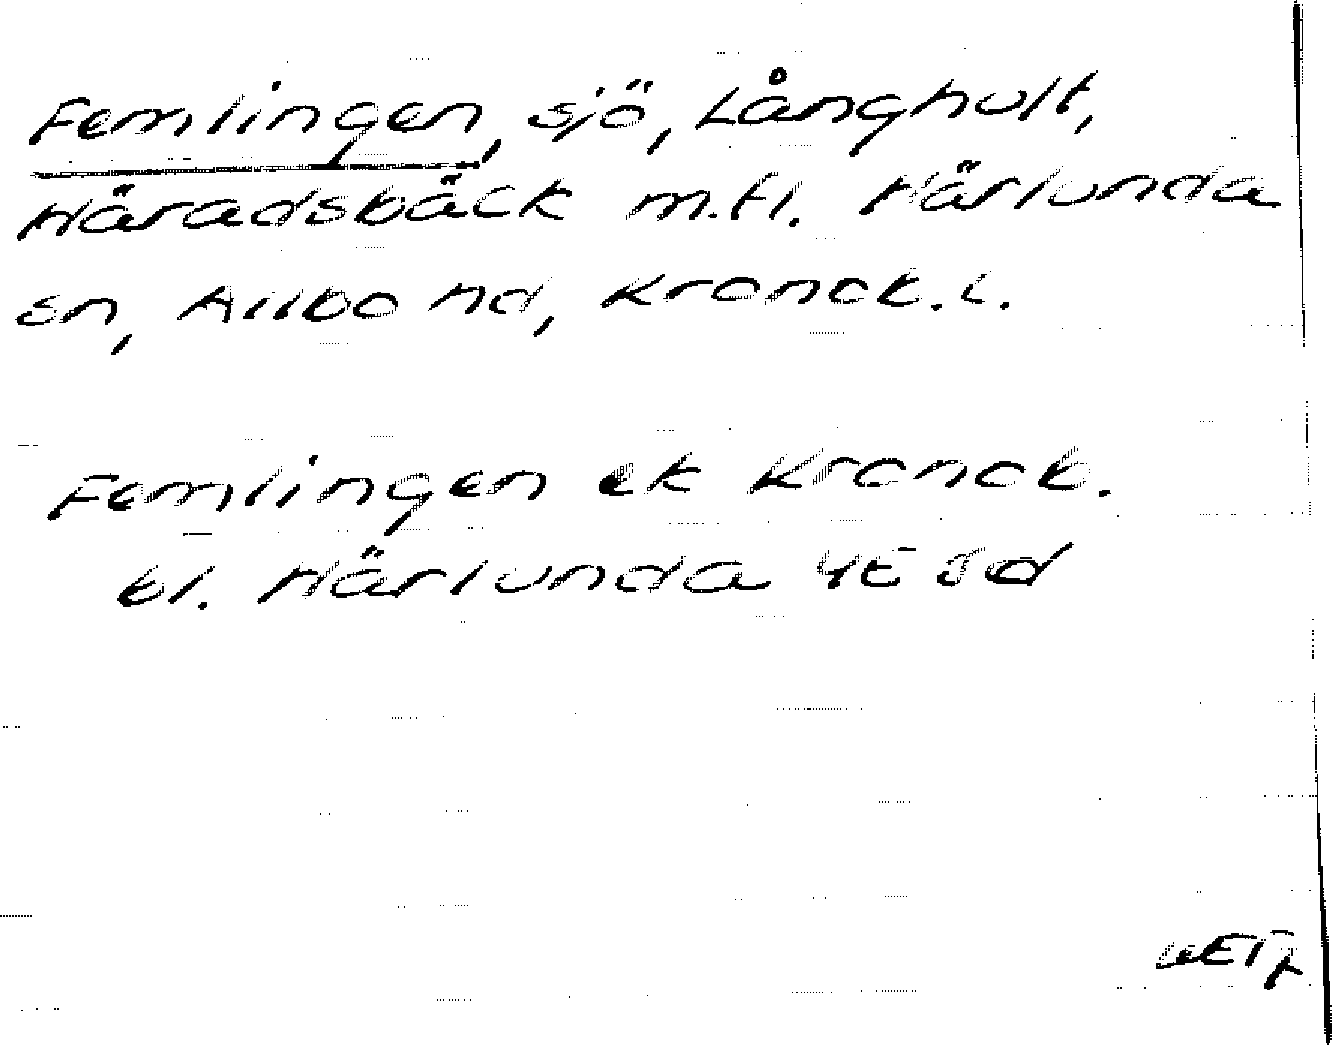 Femlingen, sjö, Långhult,
Häradsbäck m.fl. Härlunda
sn, Allbo hd, Kronob. l.
Femlingen ek Kronob.
bl. Härlunda 4E 5d